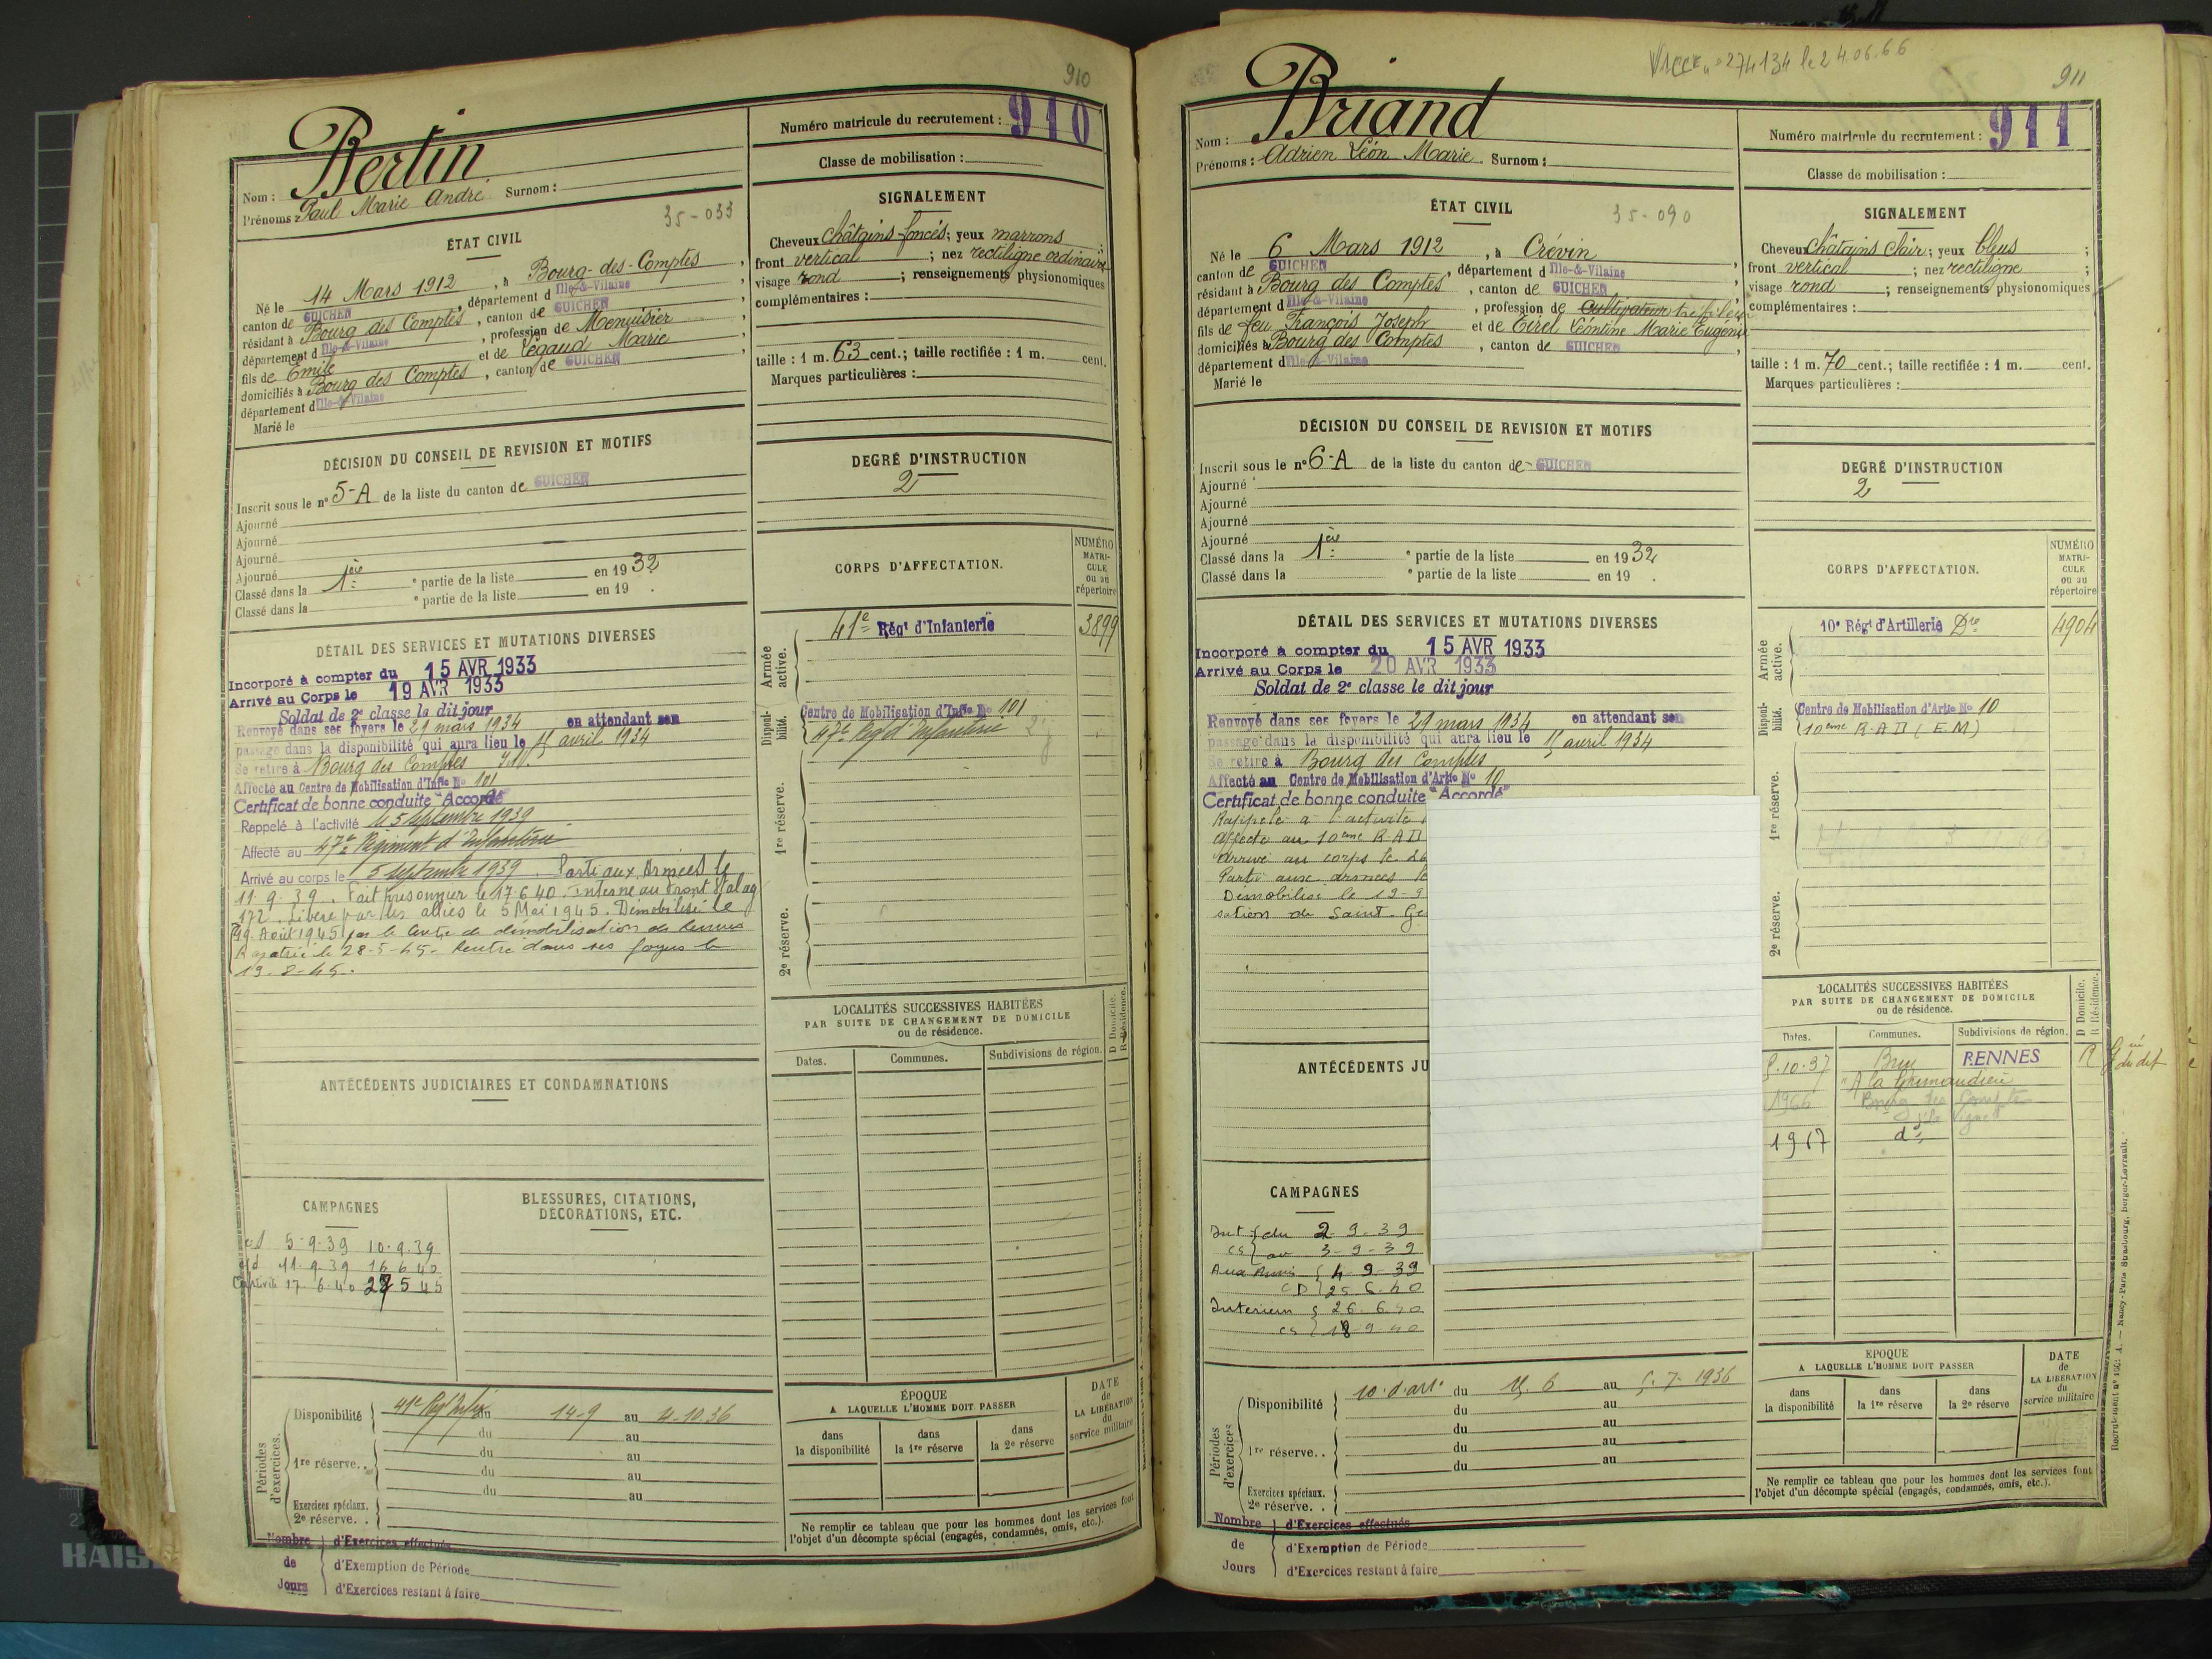 910
Bertin
Nom :
Prénoms : Paul Marie André Surnom :
35-033
Numéro matricule du recrutement : 910
Classe de mobilisation :
ÉTAT CIVIL
Né le 14 Mars 1912, à Bourg-des-Comptes,
canton de GUICHEN, département d Ille-&-Vilaine,
résidant à Bourg des Comptes, canton de GUICHEN,
département d Ille-&-Vilaine, profession de Menuisier,
fils de Emile et de Legaud Marie,
domiciliés à Bourg des Comptes, canton de GUICHEN,
département d Ille-&-Vilaine
Marié le
SIGNALEMENT
Cheveux châtains foncés ; yeux marrons ;
front vertical ; nez rectiligne ordinaire
visage rond ; renseignements physionomiques
complémentaires :
taille : 1 m. 63 cent.; taille rectifiée : 1 m. cent.
Marques particulières :
DÉCISION DU CONSEIL DE REVISION ET MOTIFS
Inscrit sous le n° 5-A de la liste du canton de GUICHEN
Ajourné
Ajourné
Ajourné
Ajourné
Classé dans la 1ère partie de la liste en 1932
Classé dans la e partie de la liste en 19 .
DEGRÉ D'INSTRUCTION
2
CORPS D'AFFECTATION.
NUMÉRO MATRICULE ou au répertoire
Armée active.
41e Régt d'Infanterie 3899
Disponibilité.
Centre de Mobilisation d'Infie No 101
47e Régt d'Infanterie
1re réserve.
2e réserve.
DÉTAIL DES SERVICES ET MUTATIONS DIVERSES
Incorporé à compter du 15 AVR 1933
Arrivé au Corps le 19 AVR 1933
Soldat de 2e classe le dit jour
Renvoyé dans ses foyers le 29 mars 1934 en attendant son
passage dans la disponibilité qui aura lieu le 15 avril 1934
Se retire à Bourg des Comptes
Affecté au Centre de Mobilisation d'Infie No 101
Certificat de bonne conduite "Accordé"
Rappelé à l'activité le 5 septembre 1939
Affecté au 47e Régiment d'Infanterie
Arrivé au corps le 5 septembre 1939. Parti aux Armées le
11.9.39. Fait prisonnier le 17 6 40. Interné au Front Stalag
172. Libéré par les alliés le 5 Mai 1945. Démobilisé le
19 Août 1945 par le Centre de démobilisation de Rennes
Rapatrié le 28-5-45. Rentre dans ses foyers le
19-8-45.
LOCALITÉS SUCCESSIVES HABITÉES
PAR SUITE DE CHANGEMENT DE DOMICILE
ou de résidence.
D Domicile. R Résidence.
Dates. Communes. Subdivisions de région.
ANTÉCÉDENTS JUDICIAIRES ET CONDAMNATIONS
CAMPAGNES
5-9-39 10-9-39
11.9.39 16 6 40
Captivité 17.6.40 27 5 45
BLESSURES, CITATIONS,
DÉCORATIONS, ETC.
Périodes d'exercices.
Disponibilité 41e du 14-9 au 4-10-36
du au
1re réserve. . du au
du au
du au
Exercices spéciaux.
2e réserve. .
ÉPOQUE
A LAQUELLE L'HOMME DOIT PASSER
dans la disponibilité
dans la 1re réserve
dans la 2e réserve
DATE de LA LIBÉRATION du service militaire
Ne remplir ce tableau que pour les hommes dont les services font
l'objet d'un décompte spécial (engagés, condamnés, omis, etc.).
Nombre de Jours
d'Exercices effectués
d'Exemption de Période
d'Exercices restant à faire
n° 274134 le 24.06.66
911
Briand
Nom :
Prénoms : Adrien Léon Marie Surnom :
35-090
Numéro matricule du recrutement : 911
Classe de mobilisation :
ÉTAT CIVIL
Né le 6 Mars 1912, à Crévin,
canton de GUICHEN, département d Ille-&-Vilaine,
résidant à Bourg des Comptes, canton de GUICHEN,
département d Ille-&-Vilaine, profession de Cultivateur tréfileur
fils de feu François Joseph et de Tirel Léontine Marie Eugénie
domiciliés à Bourg des Comptes, canton de GUICHEN,
département d Ille-&-Vilaine
Marié le
SIGNALEMENT
Cheveux Châtains clair ; yeux bleus ;
front vertical ; nez rectiligne ;
visage rond ; renseignements physionomiques
complémentaires :
taille : 1 m. 70 cent.; taille rectifiée : 1 m. cent.
Marques particulières :
DÉCISION DU CONSEIL DE REVISION ET MOTIFS
Inscrit sous le n° 6-A de la liste du canton de GUICHEN
Ajourné
Ajourné
Ajourné
Ajourné
Classé dans la 1ère partie de la liste en 1932
Classé dans la e partie de la liste en 19 .
DEGRÉ D'INSTRUCTION
2
CORPS D'AFFECTATION.
NUMÉRO MATRICULE ou au répertoire
Armée active.
10e Régt d'Artillerie Dre 4904
Disponibilité.
Centre de Mobilisation d'Artie No 10
10eme R.A.D (E.M)
1re réserve.
2e réserve.
DÉTAIL DES SERVICES ET MUTATIONS DIVERSES
Incorporé à compter du 15 AVR 1933
Arrivé au Corps le 20 AVR 1933
Soldat de 2e classe le dit jour
Renvoyé dans ses foyers le 29 mars 1934 en attendant son
passage dans la disponibilité qui aura lieu le 15 avril 1934
Se retire à Bourg des Comptes
Affecté au Centre de Mobilisation d'Artie No 10
Certificat de bonne conduite "Accordé"
Rappelé à l'activité
Affecté au 10eme R.A.D
Arrivé au corps le 26
Parti aux armées le
Démobilisé le 19-9
sation de Saint-Ge
LOCALITÉS SUCCESSIVES HABITÉES
PAR SUITE DE CHANGEMENT DE DOMICILE
ou de résidence.
D Domicile. R Résidence.
Dates. Communes. Subdivisions de région.
5.10.37 Bruz RENNES R
"A la
1966 Bourg des Comptes
1967 do
ANTÉCÉDENTS JU
CAMPAGNES
Int. du 2-9-39
CS au 3-9-39
Aux Armées 4-9-39
CD 25.6.40
Intérieur 26.6.40
CS 18-9-40
Périodes d'exercices
Disponibilité 10e d'art. du 15.6 au 5.7.1936
du au
du au
1re réserve. . du au
du au
Exercices spéciaux.
2e réserve. .
ÉPOQUE
A LAQUELLE L'HOMME DOIT PASSER
dans la disponibilité
dans la 1re réserve
dans la 2e réserve
DATE de LA LIBÉRATION du service militaire
Ne remplir ce tableau que pour les hommes dont les services font
l'objet d'un décompte spécial (engagés, condamnés, omis, etc.).
Nombre de Jours
d'Exercices effectués
d'Exemption de Période
d'Exercices restant à faire
Nancy-Paris-Strasbourg, Berger-Levrault.